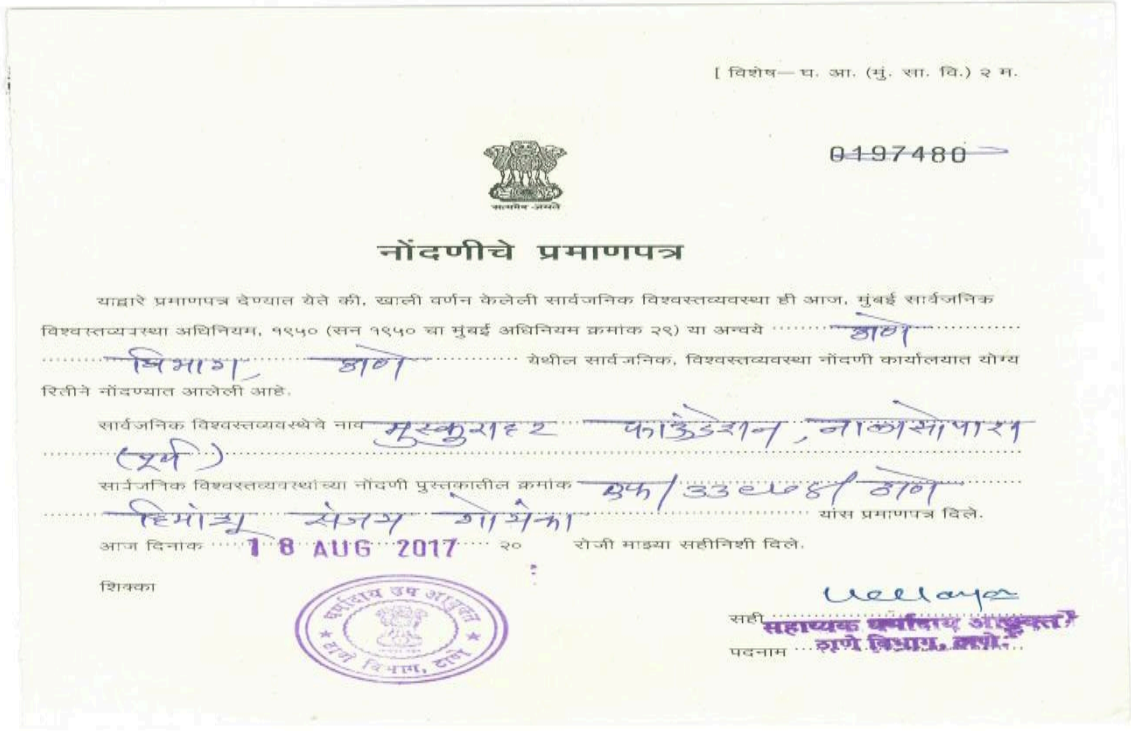 [ विशेष— ध. आ. (मुं. सा. वि.) २ म.
0197480
सत्यमेव जयते
नोंदणीचे प्रमाणपत्र
याद्वारे प्रमाणपत्र देण्यात येते की, खाली वर्णन केलेली सार्वजनिक विश्वस्तव्यवस्था ही आज, मुंबई सार्वजनिक
विश्वस्तव्यवस्था अधिनियम, १९५० (सन १९५० चा मुंबई अधिनियम क्रमांक २९) या अन्वये ठाणे
विभाग, ठाणे येथील सार्वजनिक, विश्वस्तव्यवस्था नोंदणी कार्यालयात योग्य
रितीने नोंदण्यात आलेली आहे.
सार्वजनिक विश्वस्तव्यवस्थेचे नाव मुस्कुराहट फाऊंडेशन, नालासोपारा
(पूर्व)
सार्वजनिक विश्वस्तव्यवस्थांच्या नोंदणी पुस्तकातील क्रमांक एफ/ ठाणे
हिमांशू संजय गोयंका यांस प्रमाणपत्र दिले.
आज दिनांक 18 AUG 2017 २० रोजी माझ्या सहीनिशी दिले.
शिक्का
धर्मादाय उप आयुक्त
ठाणे विभाग, ठाणे
सही
सहाय्यक धर्मादाय आयुक्त
पदनाम ठाणे विभाग, ठाणे.